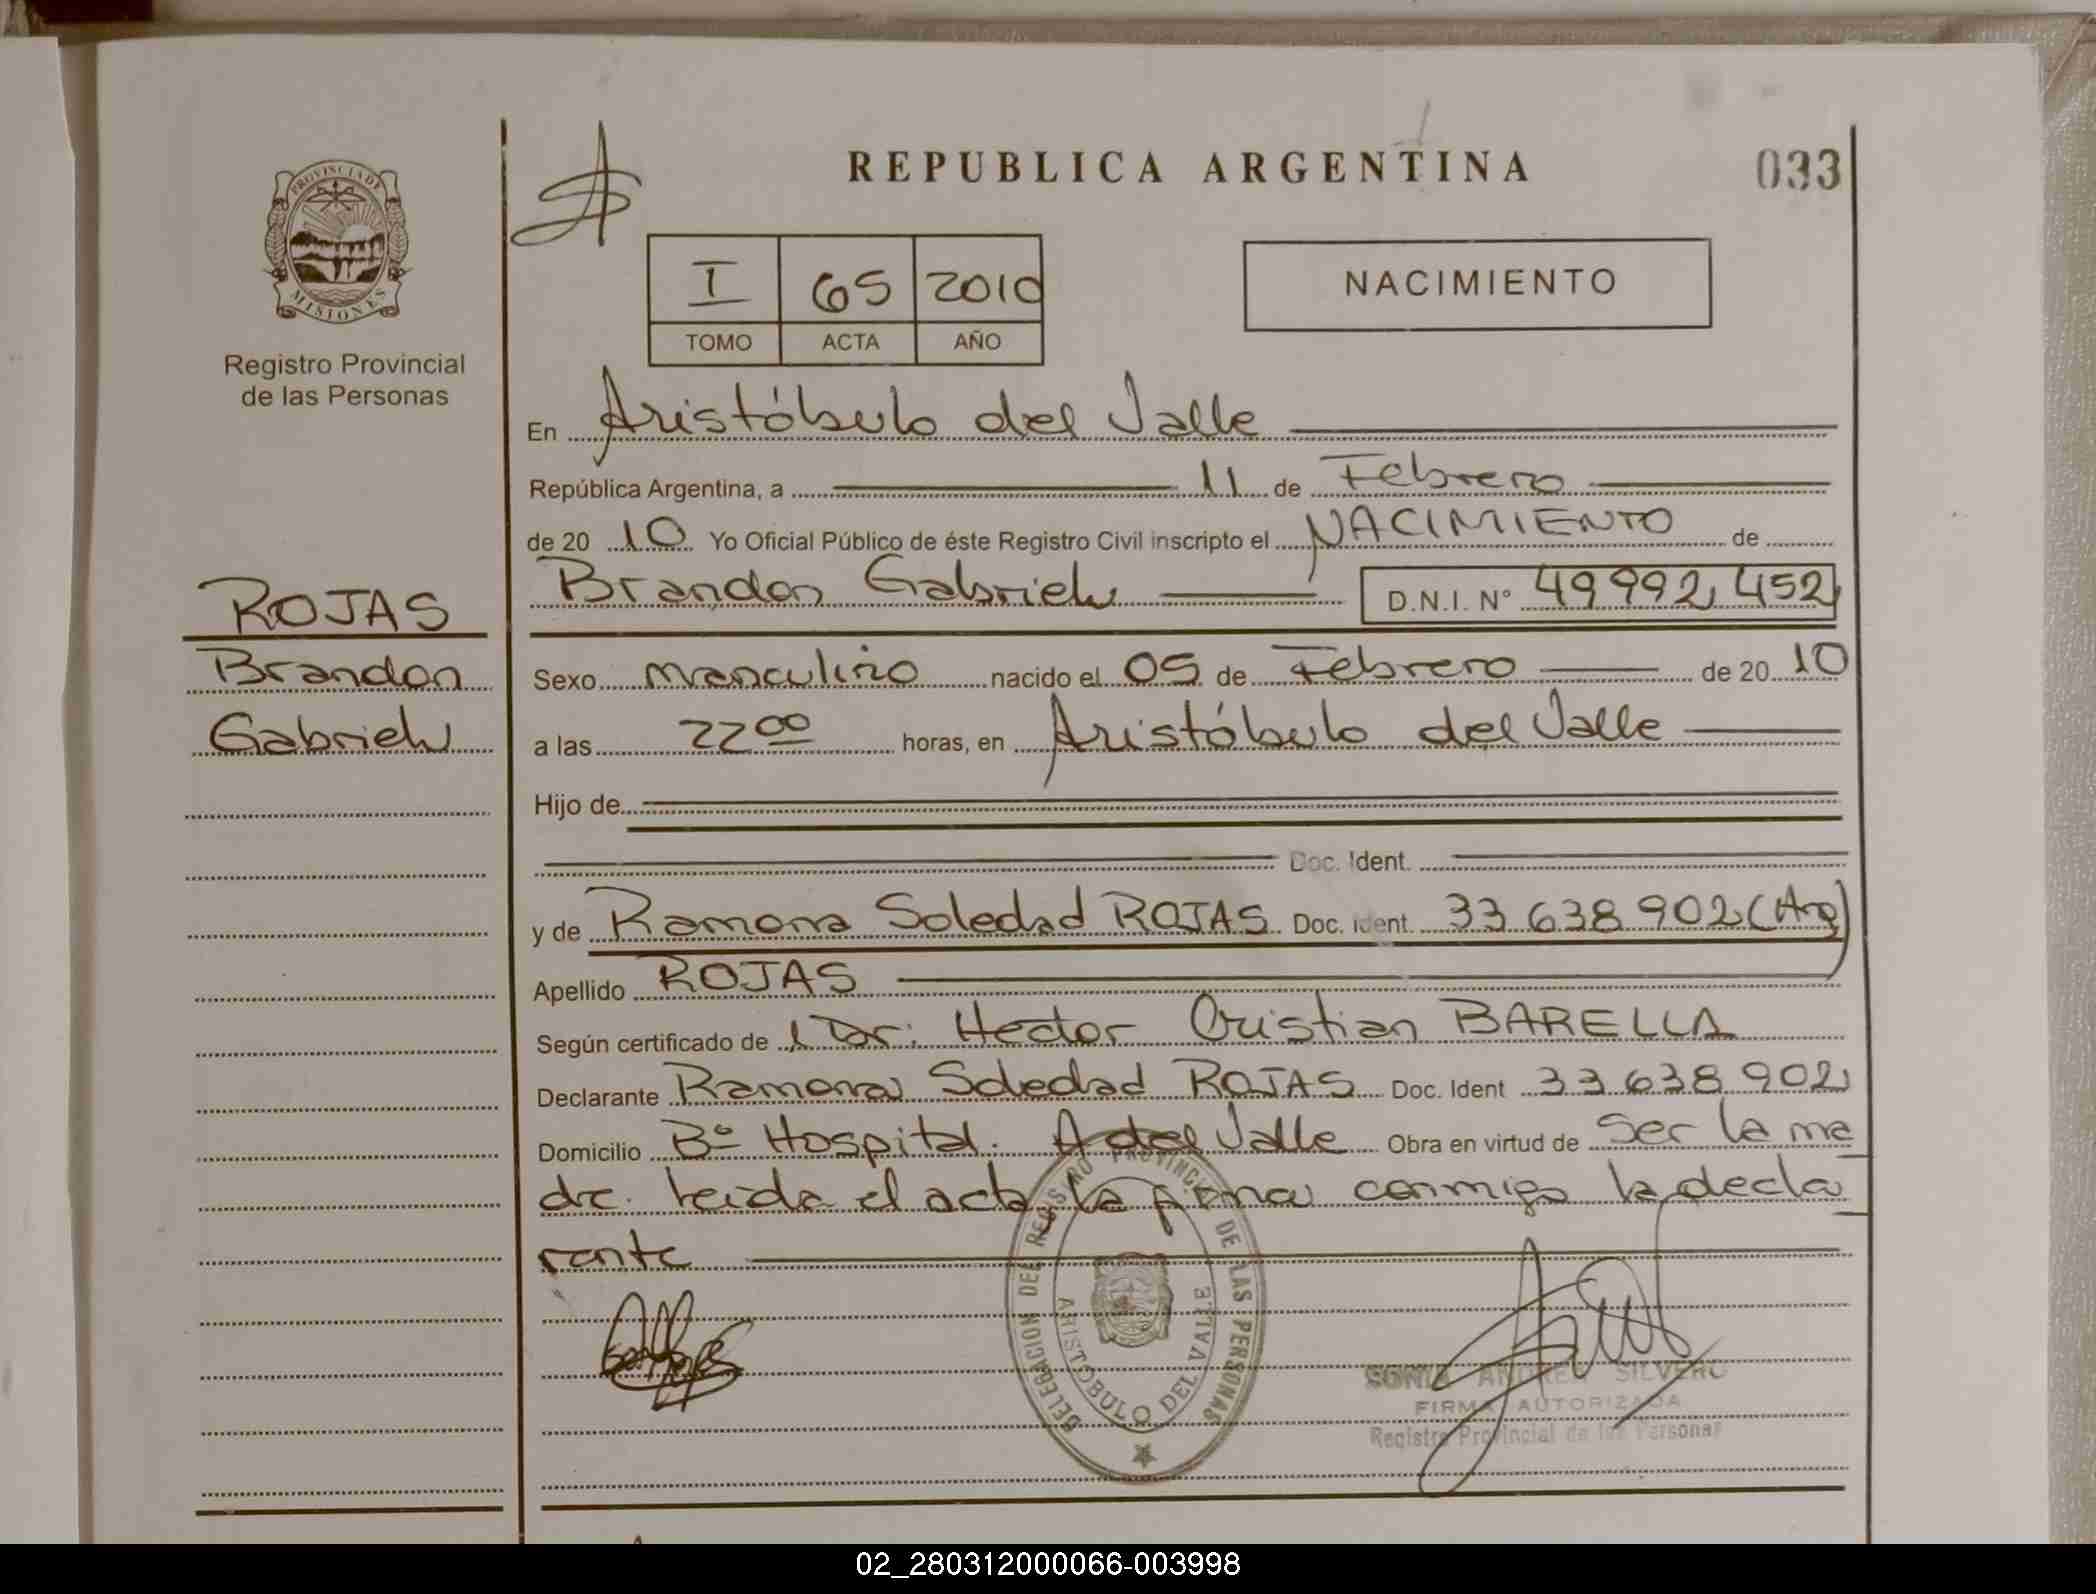 REPUBLICA ARGENTINA
033
PROVINCIA DE
MISIONES
Registro Provincial
de las Personas
I 65 2010
TOMO ACTA AÑO
NACIMIENTO
En Aristóbulo del Valle
República Argentina, a 11 de Febrero
de 20 10 Yo Oficial Público de éste Registro Civil inscripto el NACIMIENTO de
Brandon Gabriel D.N.I. Nº 49992452
ROJAS
Brandon
Gabriel
Sexo masculino nacido el 05 de Febrero de 20 10
a las 22 00 horas, en Aristóbulo del Valle
Hijo de
Doc. Ident.
y de Ramona Soledad ROJAS Doc. Ident. 33 638 902 (Arg)
Apellido ROJAS
Según certificado de Dr. Hector Cristian BARELLA
Declarante Ramona Soledad ROJAS Doc. Ident 33 638 902
Domicilio Bº Hospital. A del Valle Obra en virtud de Ser la ma
dre. leida el acta la firma conmigo la decla
rante
DELEGACION DEL REGISTRO PROVINCIAL DE LAS PERSONAS
ARISTOBULO DEL VALLE
SONIA ANDREA SILVERO
FIRMA AUTORIZADA
Registro Provincial de las Personas
02_280312000066-003998